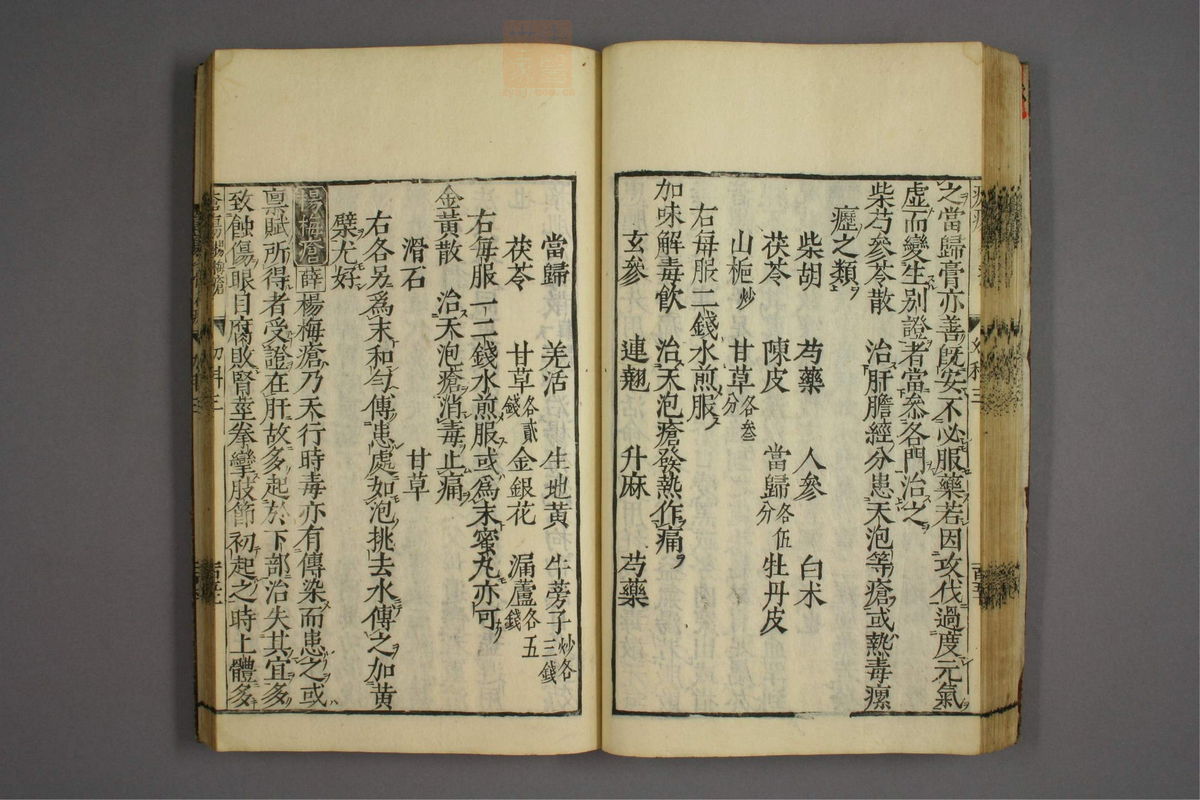 之當歸膏亦善既安不必服藥若因攻伐過度元氣
虛而變生别證者當叅各門治之
柴芍參苓散　治肝膽經分患天泡等瘡或熱毒瘰
癧之類
柴胡　芍藥　人參　白术
茯苓　陳皮　當歸各伍分　牡丹皮
山梔炒　甘草各叁分
右毎服二錢水煎服
加味解毒飲　治天泡瘡發熱作痛
玄參　連翹　升麻　芍藥
當歸　羌活　生地黄　牛蒡子炒各三錢
茯苓　甘草各貳錢　金銀花　漏蘆各五錢
右毎服一二錢水煎服或爲末蜜丸亦可
金黄散　治天泡瘡消毒止痛
滑石　甘草
右各另爲末和匀傅患處如泡挑去水傅之加黄
檗尤好
楊梅瘡　薛　楊梅瘡乃天行時毒亦有傳染而患之或
禀賦所得者受證在肝故多起於下部治失其宜多
致蝕傷眼目腐敗腎莖拳攣肢節初起之時上體多
瘡瘍　楊梅瘡　幼科三